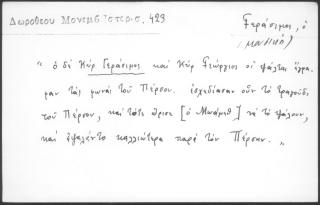 Δωροθέου Μονεμβ. Ἱστορισ. 423
Γεράσιμος, ὁ
(μουσική)
"ὁ δὲ Κὺρ Γεράσιμος καὶ Κὺρ Γεώργιος οἱ ψάλται ἔγρα-
ψαν τὰς φωνὰς τοῦ Πέρσου. ἐσχεδίασαν οὖν τὸ τραγούδι
τοῦ Πέρσου, καὶ τότε ὥρισε [ὁ Μωάμεθ] νὰ τὸ ψάλουν,
καὶ ἐψάλθη τὸ καλλιώτερα παρὰ τὸν Πέρσην."